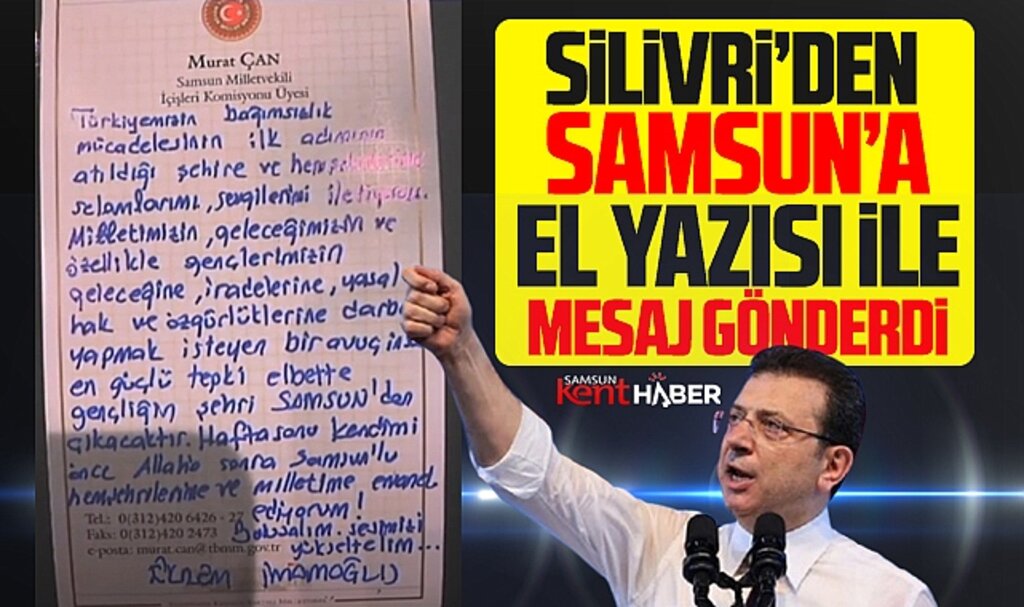 Murat ÇAN
Samsun Milletvekili
İçişleri Komisyonu Üyesi
Türkiyemizin bağımsızlık
mücadelesinin ilk adımının
atıldığı şehire ve
selamlarımı, sevgilerimi iletiyorum.
Milletimizin, geleceğimizin ve
özellikle gençlerimizin
geleceğine, iradelerine, yasal
hak ve özgürlüklerine darb
yapmak isteyen bir avuç
en güçlü tepki elbette
gençliğin şehri SAMSUN'dan
çıkacaktır. Haftasonu kendimi
önce Allah'a sonra Samsun'lu
hemşehrilerime ve milletime emanet
ediyorum!
Tel.: 0(312)420 6426 - 27
Faks: 0(312)420 2473
e-posta: murat.can@tbmm.gov.tr
Buluşalım. sesimizi
yükseltelim...
EKREM İMAMOĞLU
SİLİVRİ'DEN
SAMSUN'A
EL YAZISI İLE
MESAJ GÖNDERDİ
SAMSUN
kent HABER